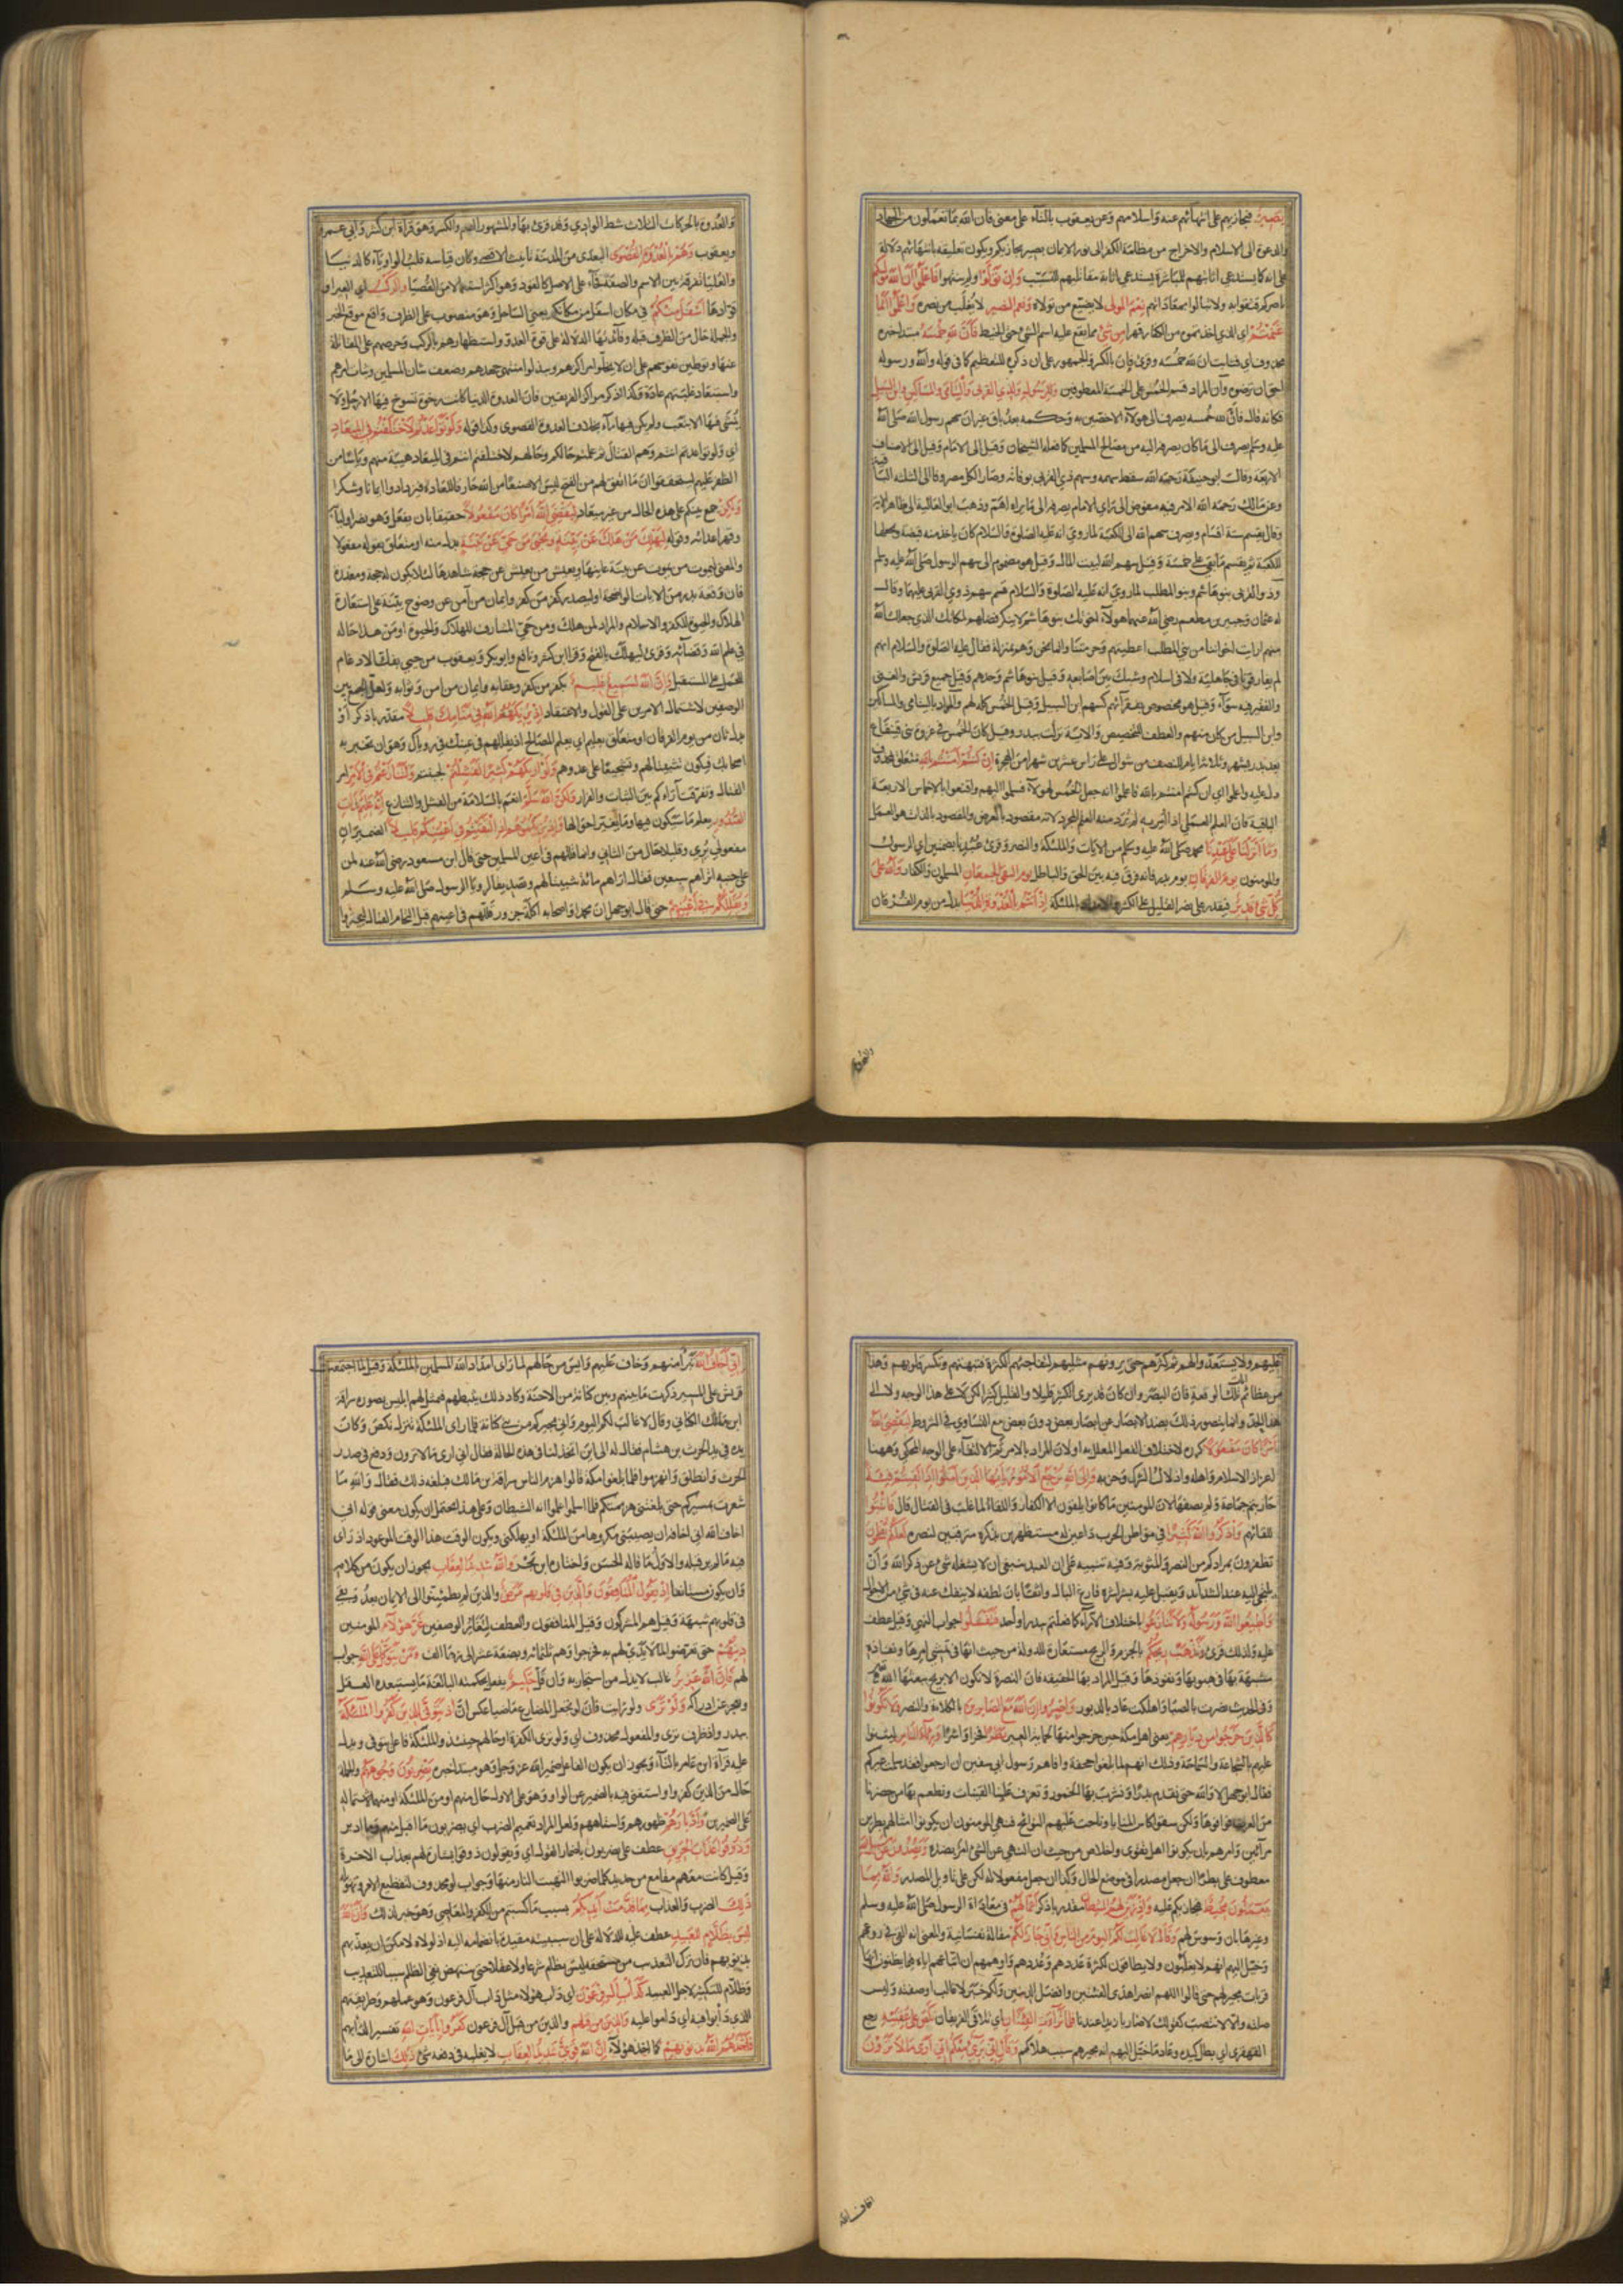 بصير فيجازيهم على انتهائهم عنه واسلامهم وعن يعقوب بالتاء على معنى فان الله بما تعملون من الجهاد
والدعوة الى الاسلام والاخراج من ظلمة الكفر الى نور الايمان بصير يجازيكم ويكون تعليقه بانتهائهم دلالة
على انه كما يستدعي اثابتهم للمباشرة يستدعي اثابة مقاتليهم للتسبب وان تولوا ولم ينتهوا فاعلموا ان الله موليكم
ناصركم فثقوا به ولا تبالوا بمعاداتهم نعم المولى لا يضيع من تولاه ونعم النصير لا يغلب من نصره واعلموا انما
غنمتم اي الذي اخذتموه من الكفار قهرا من شئ مما يقع عليه اسم الشئ حتى الخيط فان لله خمسه مبتدا خبره
محذوف اي فثابت ان لله خمسه وقرئ فان بالكسر والجمهور على ان ذكره للتعظيم كما في قوله والله ورسوله
احق ان يرضوه وان المراد قسم الخمس على الخمسة المعطوفين وللرسول ولذي القربى واليتامى والمساكين وابن السبيل
فكانه قال فان لله خمسه يصرف الى هولاء الاخصين به وحكمه بعد باق غير ان سهم رسول الله صلى الله
عليه وسلم يصرف الى ما كان يصرفه اليه من مصالح المسلمين كما فعله الشيخان وقيل الى الامام وقيل الى الاصناف
الاربعة وقال ابو حنيفة رحمه الله سقط سهمه وسهم ذوي القربى بوفاته وصار الكل مصروفا الى الثلثة الباقية
وعن مالك رحمه الله الامر فيه مفوض الى راي الامام يصرفه الى ما يراه اهم وذهب ابو العالية الى ظاهر الاية
وقال يقسم ستة اقسام ويصرف سهم الله الى الكعبة لما روي انه عليه الصلوة والسلام كان ياخذ منه قبضة ويجعلها
للكعبة ثم يقسم ما بقي على خمسة وقيل سهم الله لبيت المال وقيل هو مضموم الى سهم الرسول صلى الله عليه وسلم
وذوو القربى بنو هاشم وبنو المطلب لما روي انه عليه الصلوة والسلام قسم سهم ذوي القربى عليهما وقال
له عثمان وجبير بن مطعم رضي الله عنهما هولاء اخوتك بنو هاشم لا ينكر فضلهم لمكانك الذي جعلك الله
منهم ارايت اخواننا من بني المطلب اعطيتهم وحرمتنا وانما نحن وهم بمنزلة فقال عليه الصلوة والسلام انهم
لم يفارقونا في جاهلية ولا في اسلام وشبك بين اصابعه وقيل بنو هاشم وحدهم وقيل جميع قريش والغني
والفقير فيه سواء وقيل هو مخصوص بفقرائهم كسهم ابن السبيل وقيل الخمس كله لهم والمراد باليتامى والمساكين
وابن السبيل من كان منهم والعطف للتخصيص والاية نزلت ببدر وقيل كان الخمس في غزوة بني قينقاع
بعد بدر بشهر وثلاثة ايام للنصف من شوال على راس عشرين شهرا من الهجرة ان كنتم امنتم بالله متعلق بمحذوف
دل عليه واعلموا اي ان كنتم امنتم بالله فاعلموا انه جعل الخمس لهولاء فسلموا اليهم واقتنعوا بالاخماس الاربعة
الباقية فان العلم العملي اذا امر به لم يرد منه العلم المجرد لانه مقصود بالعرض والمقصود بالذات هو العمل
وما انزلنا على عبدنا محمد صلى الله عليه وسلم من الايات والملئكة والنصر وقرئ عبدنا بضمتين اي الرسول
والمومنين يوم الفرقان يوم بدر فانه فرق فيه بين الحق والباطل يوم التقى الجمعان المسلمون والكفار والله على
كل شئ قدير فيقدر على نصر القليل على الكثير والامداد بالملئكة اذ انتم بالعدوة الدنيا بدل من يوم الفرقان
والعدوة
والعدوة بالحركات الثلاث شط الوادي وقد قرئ بها والمشهور الضم والكسر وهو قراة ابن كثير وابي عمرو
ويعقوب وهم بالعدوة القصوى البعدى من المدينة تانيث الاقصى وكان قياسه قلب الواو ياء كالدنيا
والعليا تفرقة بين الاسم والصفة فجاء على الاصل كالقود وهو اكثر استعمالا من القصيا والركب اي العير او
قوادها اسفل منكم في مكان اسفل من مكانكم يعني الساحل وهو منصوب على الظرف واقع موقع الخبر
والجملة حال من الظرف قبله وفائدتها الدلالة على قوة العدو واستظهارهم بالركب وحرصهم على المقاتلة
عنها وتوطين نفوسهم على ان لا يخلوا مراكزهم ويبذلوا منتهى جهدهم وضعف شان المسلمين والتياث امرهم
واستبعاد غلبتهم عادة وكذا ذكر مراكز الفريقين فان العدوة الدنيا كانت رخوة تسوخ فيها الارجل ولا
يمشى فيها الا بتعب ولم يكن فيها ماء بخلاف العدوة القصوى وكذا قوله ولو تواعدتم لاختلفتم في الميعاد
اي ولو تواعدتم انتم وهم القتال ثم علمتم حالكم وحالهم لاختلفتم انتم في الميعاد هيبة منهم وياسا من
الظفر عليهم ليتحققوا ان ما اتفق لهم من الفتح ليس الا صنعا من الله خارقا للعادة فيزدادوا ايمانا وشكرا
ولكن جمع بينكم على هذه الحال من غير ميعاد ليقضي الله امرا كان مفعولا حقيقا بان يفعل وهو نصر اوليائه
وقهر اعدائه وقوله ليهلك من هلك عن بينة ويحيى من حي عن بينة بدل منه او متعلق بقوله مفعولا
والمعنى ليموت من يموت عن بينة عاينها ويعيش من يعيش عن حجة شاهدها لئلا يكون له حجة ومعذرة
فان وقعة بدر من الايات الواضحة او ليصدر كفر من كفر وايمان من آمن عن وضوح بينة على استعارة
الهلاك والحيوة للكفر والاسلام والمراد لمن هلك ومن حي المشارف للهلاك والحيوة او من هذا حاله
في علم الله وقضائه وقرئ ليهلك بالفتح وقرا ابن كثير ونافع وابو بكر ويعقوب من حيي بفك الادغام
للحمل على المستقبل وان الله لسميع عليم بكفر من كفر وعقابه وايمان من امن وثوابه ولعل الجمع بين
الوصفين لاشتمال الامرين على القول والاعتقاد اذ يريكهم الله في منامك قليلا مقدر باذكر او
بدل ثان من يوم الفرقان او متعلق بعليم اي يعلم المصالح اذ يقللهم في عينك في روياك وهو ان تخبر به
اصحابك فيكون تثبيتا لهم وتشجيعا على عدوهم ولو اريكهم كثيرا لفشلتم لجبنتم ولتنازعتم في الامر امر
القتال وتفرقت آراؤكم بين الثبات والفرار ولكن الله سلم انعم بالسلامة من الفشل والتنازع انه عليم بذات
الصدور يعلم ما سيكون فيها وما يغير احوالها واذ يريكموهم اذ التقيتم في اعينكم قليلا الضميران
مفعولي يرى وقليلا حال من الثاني وانما قللهم في اعين المسلمين حتى قال ابن مسعود رضي الله عنه لمن
على جنبه اتراهم سبعين فقال اراهم مائة تثبيتا لهم وتصديقا لرويا الرسول صلى الله عليه وسلم
ويقللكم في اعينهم حتى قال ابو جهل ان محمدا واصحابه اكلة جزور قللهم في اعينهم قبل التحام القتال ليجترؤا
عليهم ولا يستعدوا لهم ثم كثرهم حتى يرونهم مثليهم لتفاجئهم الكثرة فتبهتهم وتكسر قلوبهم وهذا
من عظائم آيات تلك الوقعة فان البصر وان كان قد يرى الكثير قليلا والقليل كثيرا لكن لا على هذا الوجه ولا الى
هذا الحد وانما يتصور ذلك بصد الابصار عن ابصار بعض دون بعض مع التساوي في الشروط ليقضي الله
امرا كان مفعولا كرره لاختلاف الفعل المعلل به او لان المراد بالامر ثمة الالتقاء على الوجه المحكي وههنا
اعزاز الاسلام واهله واذلال الشرك وحزبه والى الله ترجع الامور يا ايها الذين آمنوا اذا لقيتم فئة
حاربتم جماعة ولم يصفها لان المومنين ما كانوا يلقون الا الكفار واللقاء مما غلب في القتال قال فاثبتوا
للقائهم واذكروا الله كثيرا في مواطن الحرب داعين له مستظهرين بذكره مترقبين لنصره لعلكم تفلحون
تظفرون بمرادكم من النصر والمثوبة وفيه تنبيه على ان العبد ينبغي ان لا يشغله شئ عن ذكر الله وان
يلتجئ اليه عند الشدائد ويقبل عليه بشراشره فارغ البال واثقا بان لطفه لا ينفك عنه في شئ من الاحوال
واطيعوا الله ورسوله ولا تنازعوا باختلاف الآراء كما فعلتم ببدر او احد فتفشلوا جواب النهي وقيل عطف
عليه ولذلك قرئ وتذهب ريحكم بالجزم والريح مستعارة للدولة من حيث انها في تمشي امرها ونفاذه
مشبهة بها في هبوبها ونفوذها وقيل المراد بها الحقيقة فان النصرة لا تكون الا بريح يبعثها الله
وفي الحديث نصرت بالصبا واهلكت عاد بالدبور واصبروا ان الله مع الصابرين بالكلاءة والنصر ولا تكونوا
كالذين خرجوا من ديارهم يعني اهل مكة حين خرجوا منها لحماية العير بطرا فخرا واشرا ورئاء الناس ليثنوا
عليهم بالشجاعة والسماحة وذلك انهم لما بلغوا جحفة وافاهم رسول ابي سفين ان ارجعوا فقد سلمت عيركم
فقال ابو جهل لا والله حتى نقدم بدرا ونشرب بها الخمور وتعزف علينا القينات ونطعم بها من حضرنا
من العرب فوافوها ولكن سقوا كاس المنايا وناحت عليهم النوائح فنهى المومنين ان يكونوا امثالهم بطرين
مرآئين وامرهم بان يكونوا اهل تقوى واخلاص من حيث ان النهي عن الشئ امر بضده ويصدون عن سبيل الله
معطوف على بطرا ان جعل مصدرا في موضع الحال وكذا ان جعل مفعولا له لكن على تاويل المصدر والله بما
يعملون محيط فيجازيكم عليه واذ زين لهم الشيطان مقدر باذكر اعمالهم في معاداة الرسول صلى الله عليه وسلم
وغيرها بان وسوس لهم وقال لا غالب لكم اليوم من الناس واني جار لكم مقالة نفسانية والمعنى انه القى في روعهم
وخيل اليهم انهم لا يغلبون ولا يطاقون لكثرة عددهم وعددهم واوهمهم ان اتباعهم اياه فيما يظنون انها
قربات مجير لهم حتى قالوا اللهم انصر اهدى الفئتين وافضل الدينين ولكم خبر لا غالب او صفته وليس
صلته والا لانتصب كقولك لا ضاربا زيدا عندنا فلما تراءت الفئتان اي تلاقى الفريقان نكص على عقبيه رجع
القهقرى اي بطل كيده وعاد ما خيل اليهم انه مجيرهم سبب هلاكهم وقال اني برئ منكم اني ارى ما لا ترون
اخاف الله
اني اخاف الله تبرأ منهم وخاف عليهم وايس من حالهم لما راى امداد الله المسلمين بالملئكة وقيل لما اجتمعت
قريش على المسير ذكرت ما بينهم وبين كنانة من الاحنة وكاد ذلك يثبطهم فتمثل لهم ابليس بصورة سراقة
ابن مالك الكناني وقال لا غالب لكم اليوم واني مجيركم من بني كنانة فلما راى الملئكة تنزل نكص وكان
يده في يد الحرث بن هشام فقال له الى اين اتخذلنا في هذه الحالة فقال اني ارى ما لا ترون ودفع في صدر
الحرث وانطلق وانهزموا فلما بلغوا مكة قالوا هزم الناس سراقة بن مالك فبلغه ذلك فقال والله ما
شعرت بمسيركم حتى بلغتني هزيمتكم فلما اسلموا علموا انه الشيطان وعلى هذا يحتمل ان يكون معنى قوله اني
اخاف الله اني اخافه ان يصيبني مكروها من الملئكة او يهلكني ويكون الوقت هذا الوقت الموعود اذ راى
فيه ما لم ير قبله والاول ما قاله الحسن واختاره ابن بحر والله شديد العقاب يجوز ان يكون من كلامه
وان يكون مستانفا اذ يقول المنافقون والذين في قلوبهم مرض والذين لم يطمئنوا الى الايمان بعد وبقي
في قلوبهم شبهة وقيل هم المشركون وقيل المنافقون والعطف لتغاير الوصفين غر هؤلاء المومنين
دينهم حتى تعرضوا لما لا يدي لهم به فخرجوا وهم ثلثمائة وبضعة عشر الى زهاء الف ومن يتوكل على الله جواب
لهم فان الله عزيز غالب لا يذل من استجار به وان قل حكيم يفعل بحكمته البالغة ما يستبعده العقل
ويعجز عن ادراكه ولو ترى ولو رايت فان لو تجعل المضارع ماضيا عكس ان اذ يتوفى الذين كفروا الملئكة
ببدر واذ ظرف ترى والمفعول محذوف اي ولو ترى الكفرة او حالهم حينئذ والملئكة فاعل يتوفى ويدل
عليه قراءة ابن عامر بالتاء ويجوز ان يكون الفاعل ضمير الله عز وجل وهو مبتدا خبره يضربون وجوههم والجملة
حال من الذين كفروا واستغنى فيه بالضمير عن الواو وهو على الاول حال منهم او من الملئكة او منهما لاشتماله
على الضميرين وادبارهم ظهورهم واستاههم ولعل المراد تعميم الضرب اي يضربون ما اقبل منهم وما ادبر
وذوقوا عذاب الحريق عطف على يضربون باضمار القول اي ويقولون ذوقوا بشارة لهم بعذاب الاخرة
وقيل كانت معهم مقامع من حديد كلما ضربوا التهبت النار منها وجواب لو محذوف لتفظيع الامر وتهويله
ذلك الضرب والعذاب بما قدمت ايديكم بسبب ما كسبتم من الكفر والمعاصي وهو خبر لذلك وان الله
ليس بظلام للعبيد عطف عليه للدلالة على ان سببيته مقيدة بانضمامه اليه اذ لولاه لامكن ان يعذبهم
بغير ذنوبهم فان ترك التعذيب من مستحقه ليس بظلم شرعا ولا عقلا حتى ينتهض نفي الظلم سببا للتعذيب
وظلام للتكثير لاجل العبيد كداب آل فرعون اي داب هولاء مثل داب آل فرعون وهو عملهم وطريقتهم
الذي دابوا فيه اي داموا عليه والذين من قبلهم والذين من قبل آل فرعون كفروا بآيات الله تفسير لدابهم
فاخذهم الله بذنوبهم كما اخذ هؤلاء ان الله قوي شديد العقاب لا يغلبه في دفعه شئ ذلك اشارة الى ما